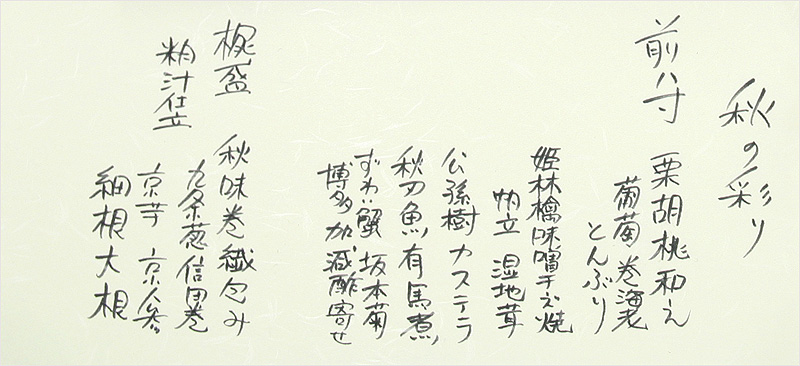 秋の彩り
前八寸
栗胡桃和え
葡萄 巻海老
とんぶり
姫林檎味噌チーズ焼
帆立 湿地茸
公孫樹カステラ
秋刀魚有馬煮
ずわい蟹 坂本菊
博多加減酢寄せ
椀盛
秋味巻繊包み
粕汁仕立
九条葱信田巻
京芋 京人参
細根大根